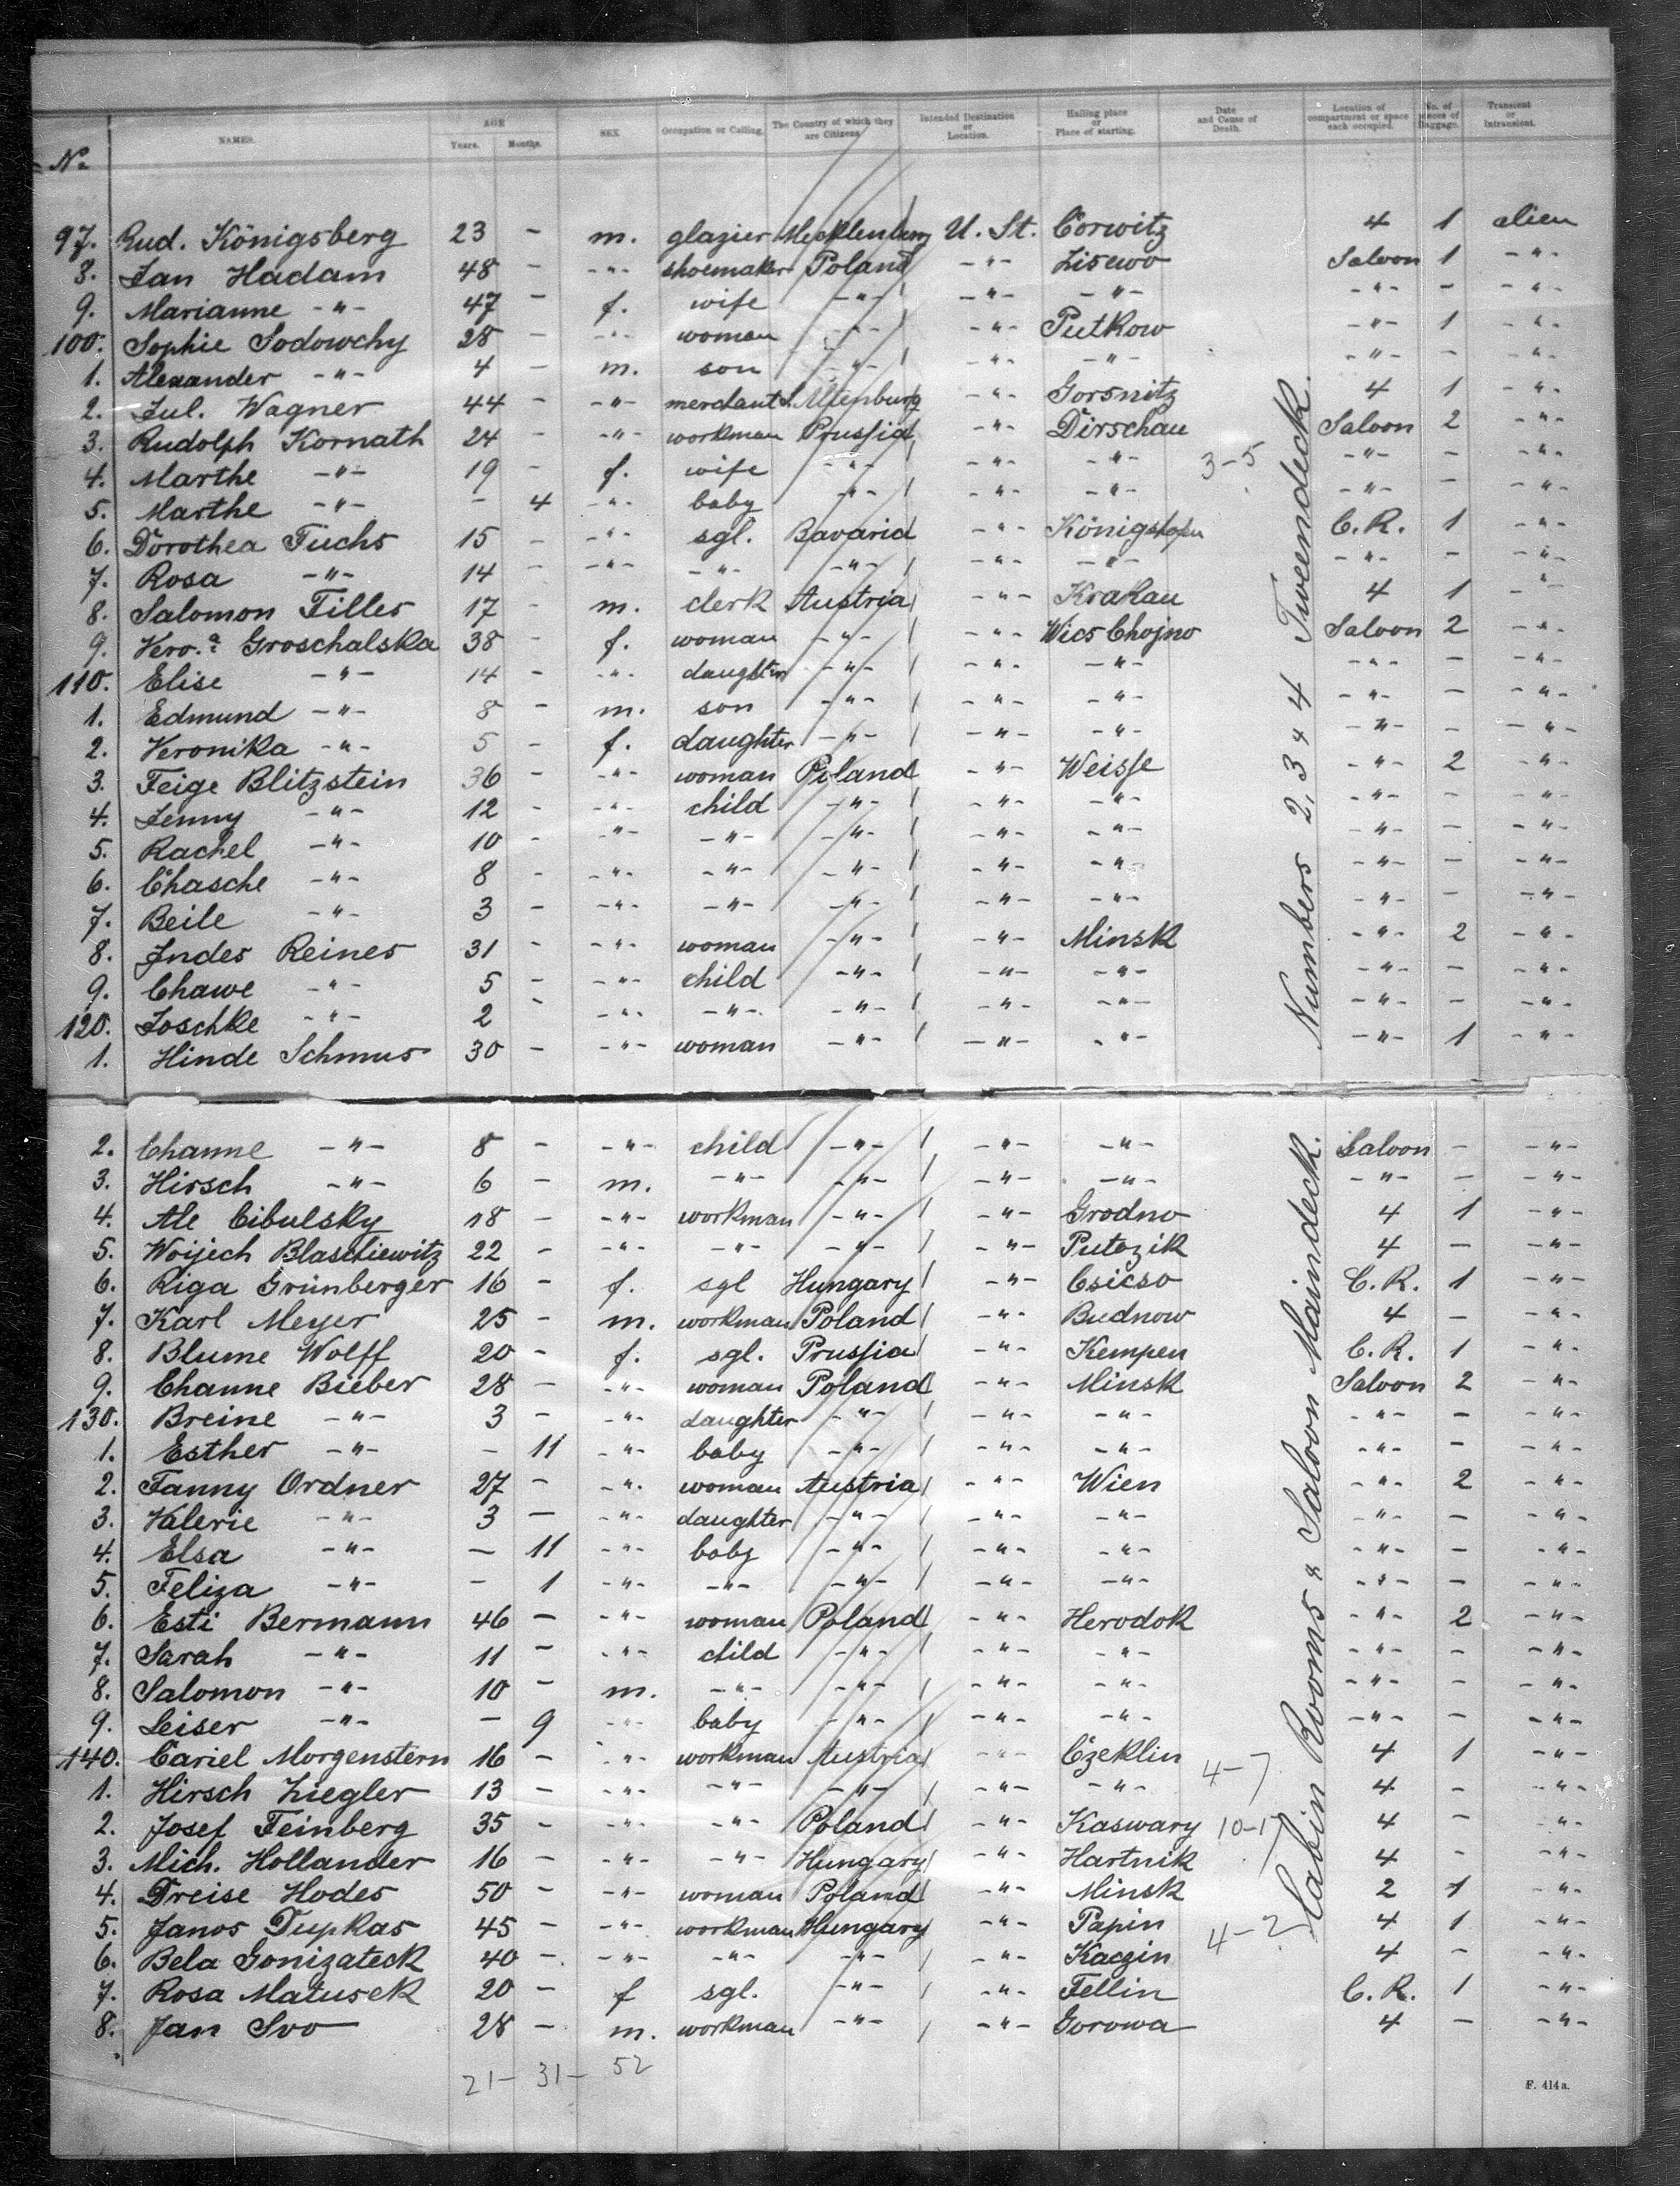 No. NAMES. AGE Years. Months. SEX Occupation or Calling. The Country of which they are Citizens Intended Destination or Location. Hailing place or Place of starting. Date and Cause of Death. Location of compartment or space each occupied. No. of pieces of Baggage. Transient or Intransient.
97. Rud. Königsberg 23 - m. glazier Mecklenburg U. St. Corwitz 4 1 alien
8. Jan Hadam 48 - -"- shoemaker Poland -"- Lisewo Saloon 1 -"-
9. Marianne -"- 47 - f. wife -"- -"- -"- -"- - -"-
100. Sophie Sodowchy 28 - -"- woman -"- -"- Putkow -"- 1 -"-
1. Alexander -"- 4 - m. son -"- -"- -"- -"- - -"-
2. Jul. Wagner 44 - -"- merchant S. Altenburg -"- Gorsnitz 4 1 -"-
3. Rudolph Kornath 24 - -"- workman Prussia -"- Dirschau Saloon 2 -"-
4. Marthe -"- 19 - f. wife -"- -"- -"- 3-5 -"- - -"-
5. Marthe -"- - 4 -"- baby -"- -"- -"- -"- - -"-
6. Dorothea Fuchs 15 - -"- sgl. Bavaria -"- Königshofen C. R. 1 -"-
7. Rosa -"- 14 - -"- -"- -"- -"- -"- -"- - -"-
8. Salomon Tilles 17 - m. clerk Austria -"- Krakau 4 1 -"-
9. Vero.a Groschalska 38 - f. woman -"- -"- Wics Chojno Saloon 2 -"-
110. Elise -"- 14 - -"- daughter -"- -"- -"- -"- - -"-
1. Edmund -"- 8 - m. son -"- -"- -"- -"- - -"-
2. Veronika -"- 5 - f. daughter -"- -"- -"- -"- - -"-
3. Feige Blitzstein 36 - -"- woman Poland -"- Weisse -"- 2 -"-
4. Jenny -"- 12 - -"- child -"- -"- -"- -"- - -"-
5. Rachel -"- 10 - -"- -"- -"- -"- -"- -"- - -"-
6. Chasche -"- 8 - -"- -"- -"- -"- -"- -"- - -"-
7. Beile -"- 3 - -"- -"- -"- -"- -"- -"- - -"-
8. Indes Reines 31 - -"- woman -"- -"- Minsk -"- 2 -"-
9. Chawe -"- 5 - -"- child -"- -"- -"- -"- - -"-
120. Joschke -"- 2 - -"- -"- -"- -"- -"- -"- - -"-
1. Hinde Schmus 30 - -"- woman -"- -"- -"- -"- 1 -"-
Numbers 2, 3 & 4 Tweendeck.
2. Channe -"- 8 - -"- child -"- -"- -"- Saloon - -"-
3. Hirsch -"- 6 - m. -"- -"- -"- -"- -"- - -"-
4. Ale Cibulsky 18 - -"- workman -"- -"- Grodno 4 1 -"-
5. Woijech Blaschiewitz 22 - -"- -"- -"- -"- Putozik 4 - -"-
6. Riga Grünberger 16 - f. sgl Hungary -"- Csicso C. R. 1 -"-
7. Karl Meyer 25 - m. workman Poland -"- Budnow 4 - -"-
8. Blume Wolff 20 - f. sgl. Prussia -"- Kempen C. R. 1 -"-
9. Channe Bieber 28 - -"- woman Poland -"- Minsk Saloon 2 -"-
130. Breine -"- 3 - -"- daughter -"- -"- -"- -"- - -"-
1. Esther -"- - 11 -"- baby -"- -"- -"- -"- - -"-
2. Fanny Ordner 27 - -"- woman Austria -"- Wien -"- 2 -"-
3. Valerie -"- 3 - -"- daughter -"- -"- -"- -"- - -"-
4. Elsa -"- - 11 -"- baby -"- -"- -"- -"- - -"-
5. Feliza -"- - 1 -"- -"- -"- -"- -"- -"- - -"-
6. Esti Bermann 46 - -"- woman Poland -"- Herodok -"- 2 -"-
7. Sarah -"- 11 - -"- child -"- -"- -"- -"- - -"-
8. Salomon -"- 10 - m. -"- -"- -"- -"- -"- - -"-
9. Leiser -"- - 9 -"- baby -"- -"- -"- -"- - -"-
140. Cariel Morgenstern 16 - -"- workman Austria -"- Czeklin 4-7 4 1 -"-
1. Hirsch Ziegler 13 - -"- -"- -"- -"- -"- 4 - -"-
2. Josef Feinberg 35 - -"- -"- Poland -"- Kaswary 10-17 4 - -"-
3. Mich. Hollander 16 - -"- -"- Hungary -"- Hartnik 4 - -"-
4. Dreise Hodes 50 - -"- woman Poland -"- Minsk 2 1 -"-
5. Janos Dupkas 45 - -"- workman Hungary -"- Papin 4-2 4 1 -"-
6. Bela Gonizateck 40 - -"- -"- -"- -"- Kaczin 4 - -"-
7. Rosa Matusek 20 - f sgl. -"- -"- Fellin C. R. 1 -"-
8. Jan Svo 28 - m. workman -"- -"- Gorowa 4 - -"-
Cabin Rooms & Saloon Maindeck.
21- 31- 52
F. 414a.